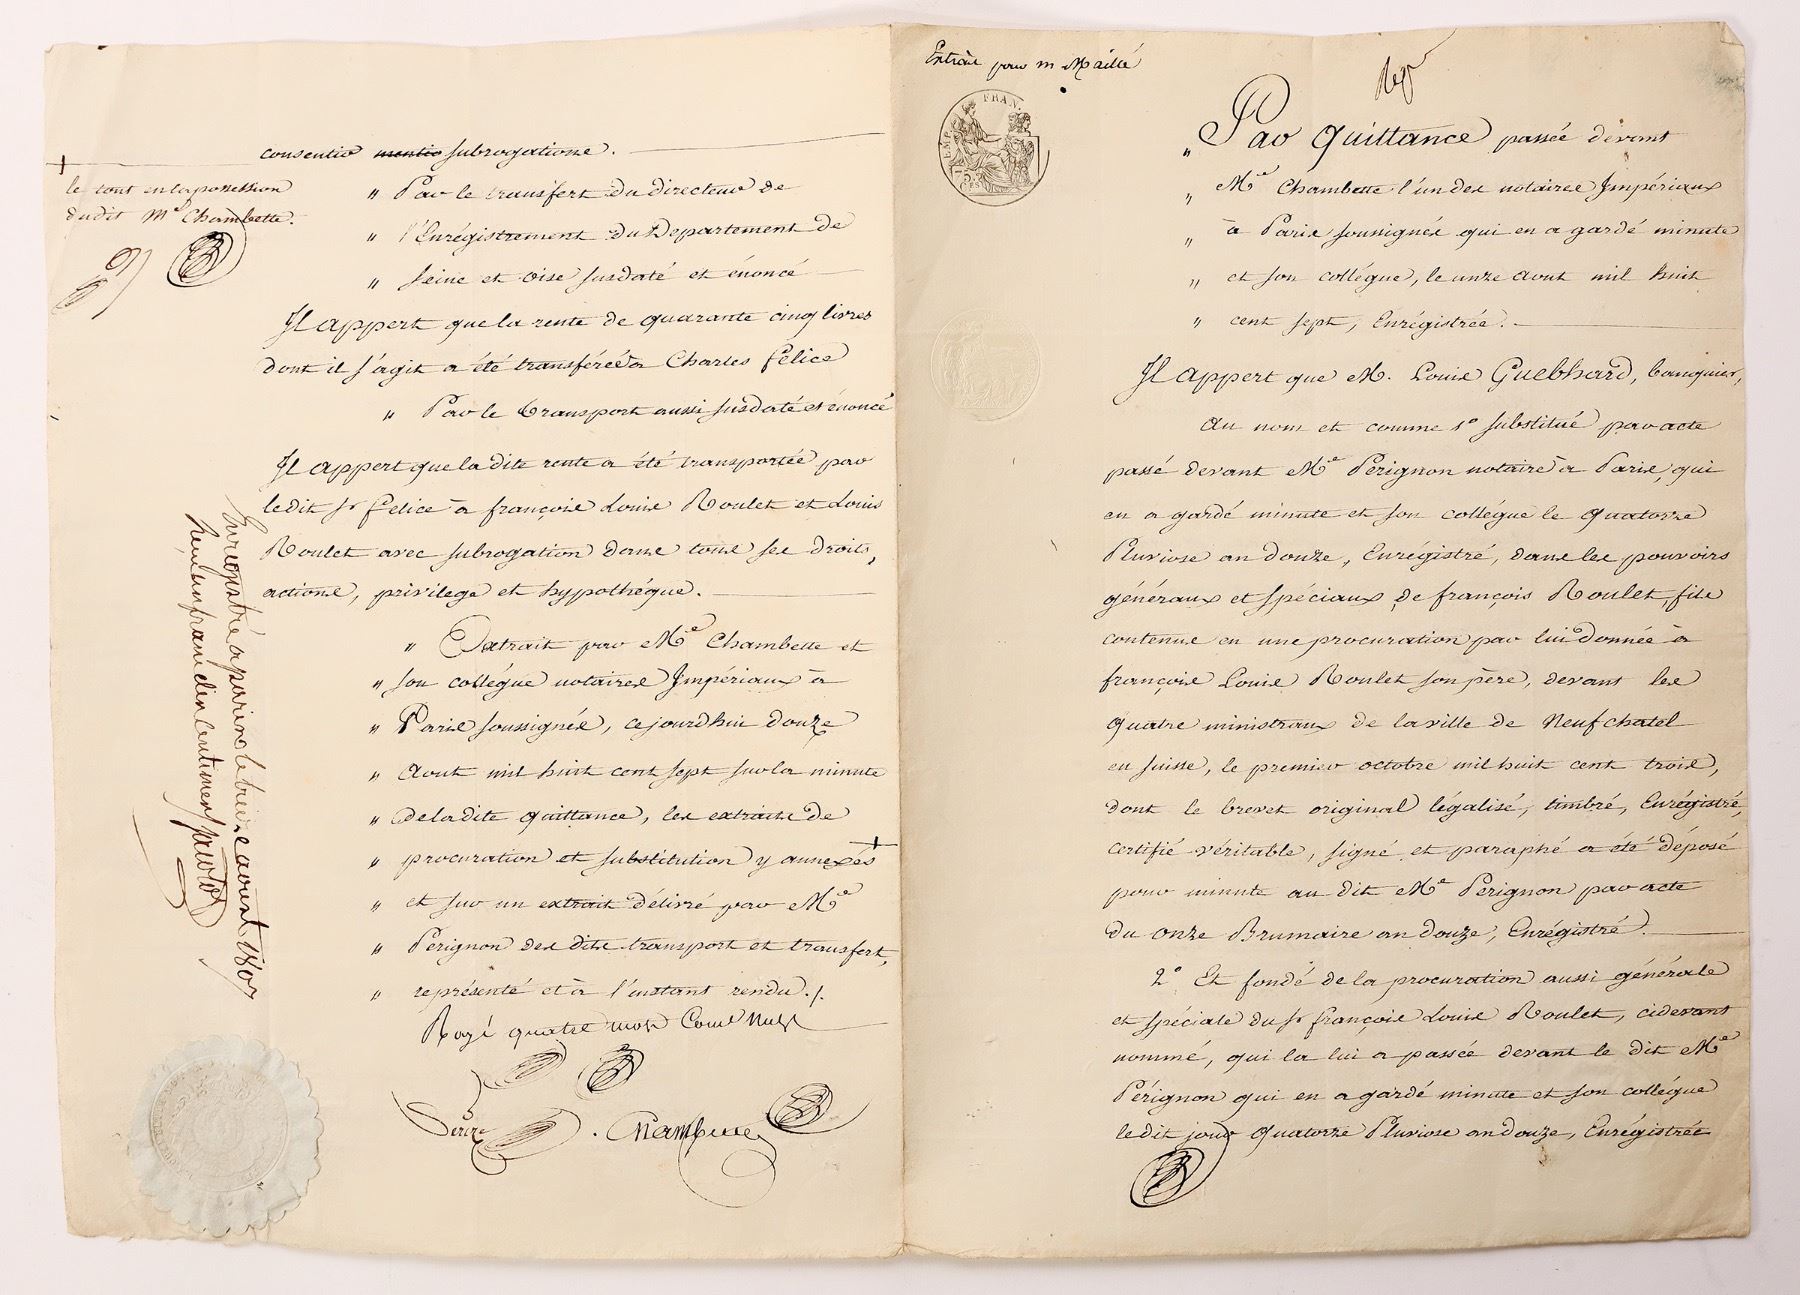 consentir mentio subrogations.
le tout en la possession
dudit Me Chambette.
" Par le transfert du directeur de
" l'Enrégistrement du Département de
" Seine et Oise susdaté et énoncé
Il appert que la rente de quarante cinq livres
dont il s'agit a été transférée à Charles Félice
" Par le transport aussi susdaté et énoncé
Il appert que la dite rente a été transportée par
le dit Sr Felice à françois Louis Roulet et Louis
Roulet avec subrogation dans tous ses droits,
actions, privilege et hypothéque.
" Extrait par Me Chambette et
" son collégue notaires Impériaux à
" Paris soussignés, ce jourdhui douze
" Aout mil huit cent sept sur la minute
" de la dite quittance, les extraits de
" procuration et substitution y annexés
" et sur un extrait délivré par Me
" Pérignon des dits transport et transfert,
" représenté et à l'instant rendu ./.
Rayé quatre mots comme nuls
Chambette
Enregistré a paris le treize aoust 1807
Reçu un franc dix centimes
Extrait pour m Maillé
EMP. FRAN.
75 CES
" Par Quittance passée devant
" Me Chambette l'un des notaires Impériaux
" à Paris soussignés qui en a gardé minute
" et son collégue, le onze Aout mil huit
" cent sept, Enrégistrée.
Il appert que M. Louis Guebhard, banquier,
Au nom et comme 1o substitué par acte
passé devant Me Pérignon notaire à Paris, qui
en a gardé minute et son collégue le quatorze
Pluviose an douze, Enrégistré, dans les pouvoirs
généraux et spéciaux de françois Roulet, fils
contenus en une procuration par lui donnée à
françois Louis Roulet son père, devant les
quatre ministraux de la ville de Neufchatel
en suisse, le premier octobre mil huit cent trois,
dont le brevet original légalisé, timbré, Enrégistré,
certifié véritable, signé et paraphé a été déposé
pour minute au dit Me Pérignon par acte
du onze Brumaire an douze, Enrégistré.
2o Et fondé de la procuration aussi générale
et spéciale du Sr françois Louis Roulet, cidevant
nommé, qui la lui a passée devant le dit Me
Pérignon qui en a gardé minute et son collégue
le dit jour quatorze Pluviose an douze, Enrégistrée